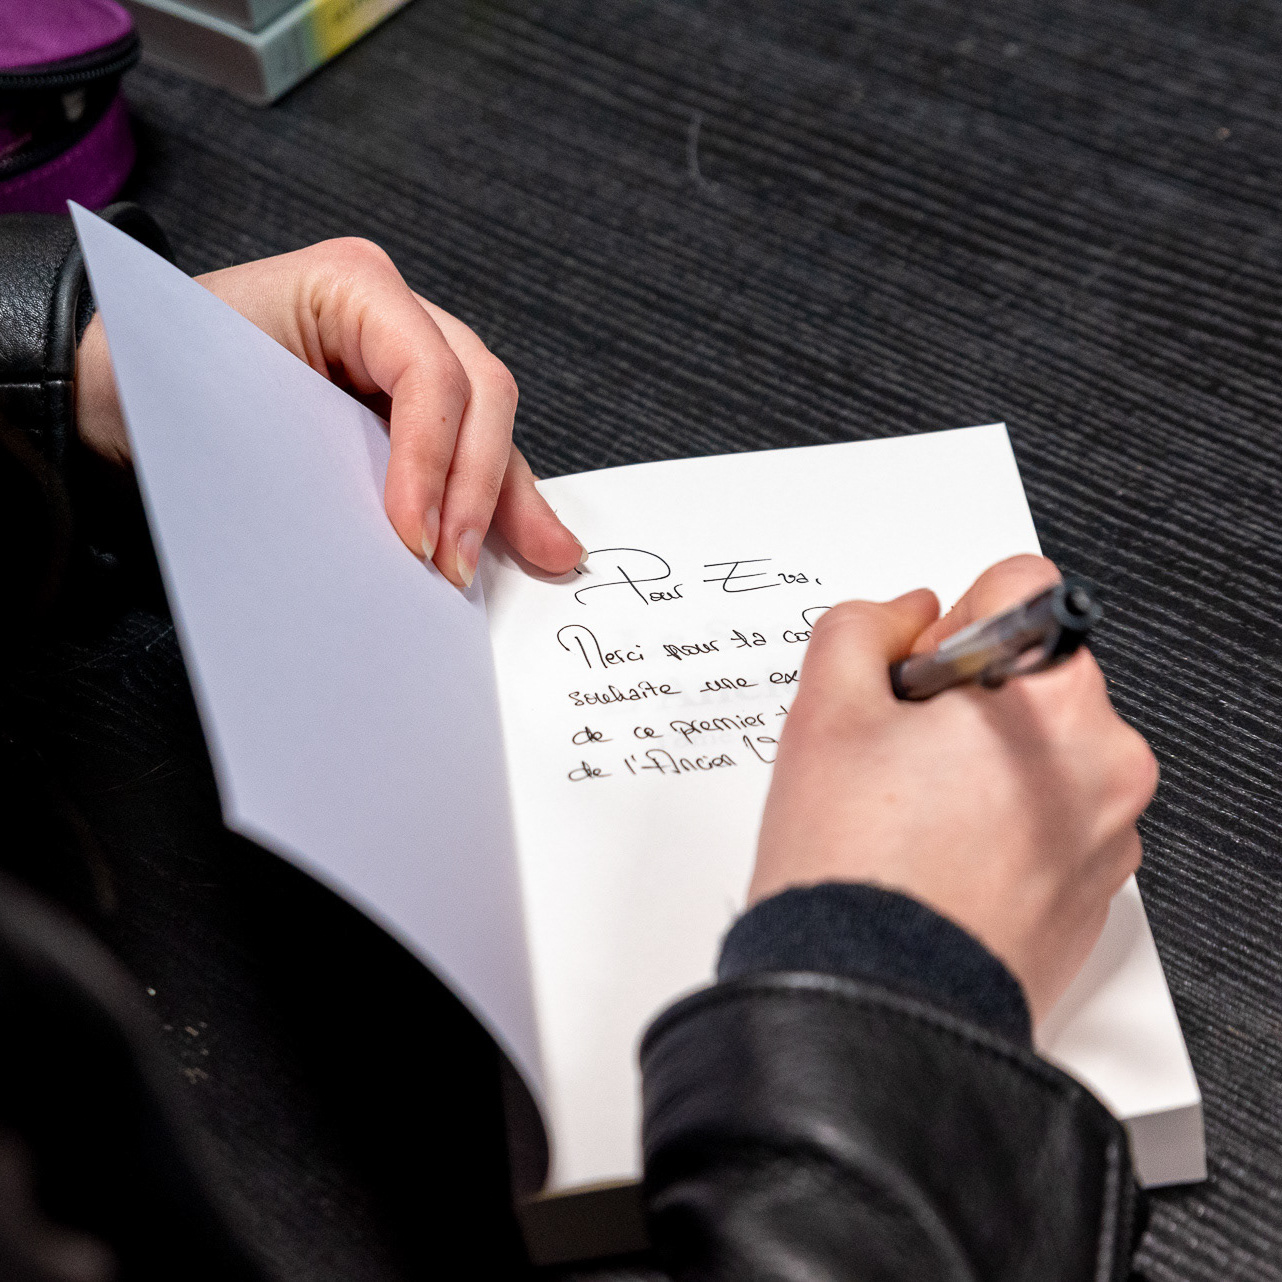 Pour Eva,
Merci pour ta
souhaite une
de ce premier
de l'Ancien